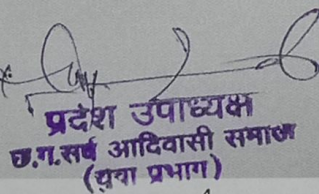 प्रदेश उपाध्यक्ष
छ.ग.सर्व आदिवासी समाज
(युवा प्रभाग)